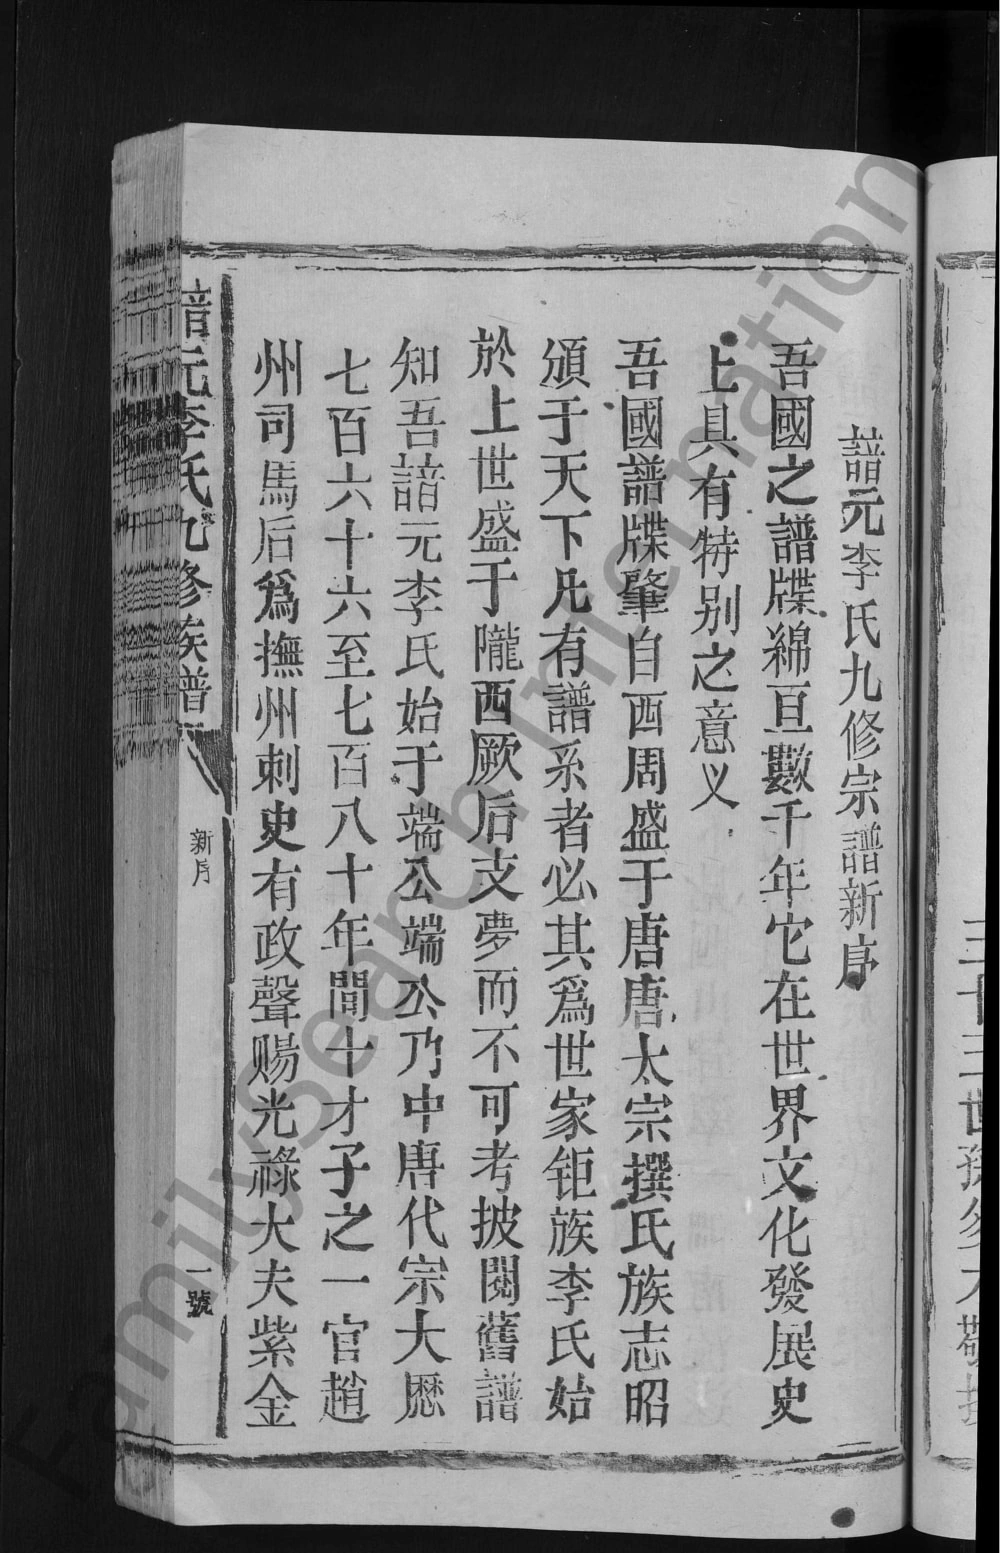 諳元李氏九修宗譜新序
吾國之譜牒綿亘數千年它在世界文化發展史
上具有特别之意义
吾國譜牒肇自西周盛于唐唐太宗撰氏族志昭
頒于天下凡有譜系者必其爲世家钜族李氏始
於上世盛于隴西厥后支蔓而不可考披閱舊譜
知吾諳元李氏始于端公端公乃中唐代宗大厯
七百六十六至七百八十年間十才子之一官趙
州司馬后爲撫州刺史有政聲赐光祿大夫紫金
諳元李氏九修族譜
新序
一號
FamilySearch International